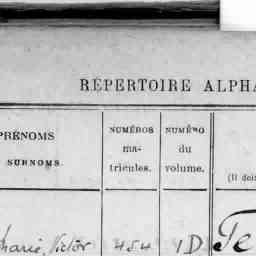 RÉPERTOIRE ALPHA
PRÉNOMS
SURNOMS.
NUMÉROS
ma-
tricules.
NUMÉRO
du
volume.
(Il doit
Victor 454 1D Te